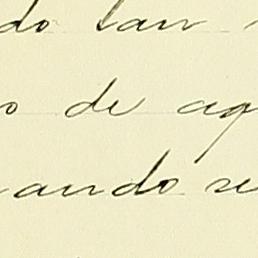 do tan
o de ag
ando re